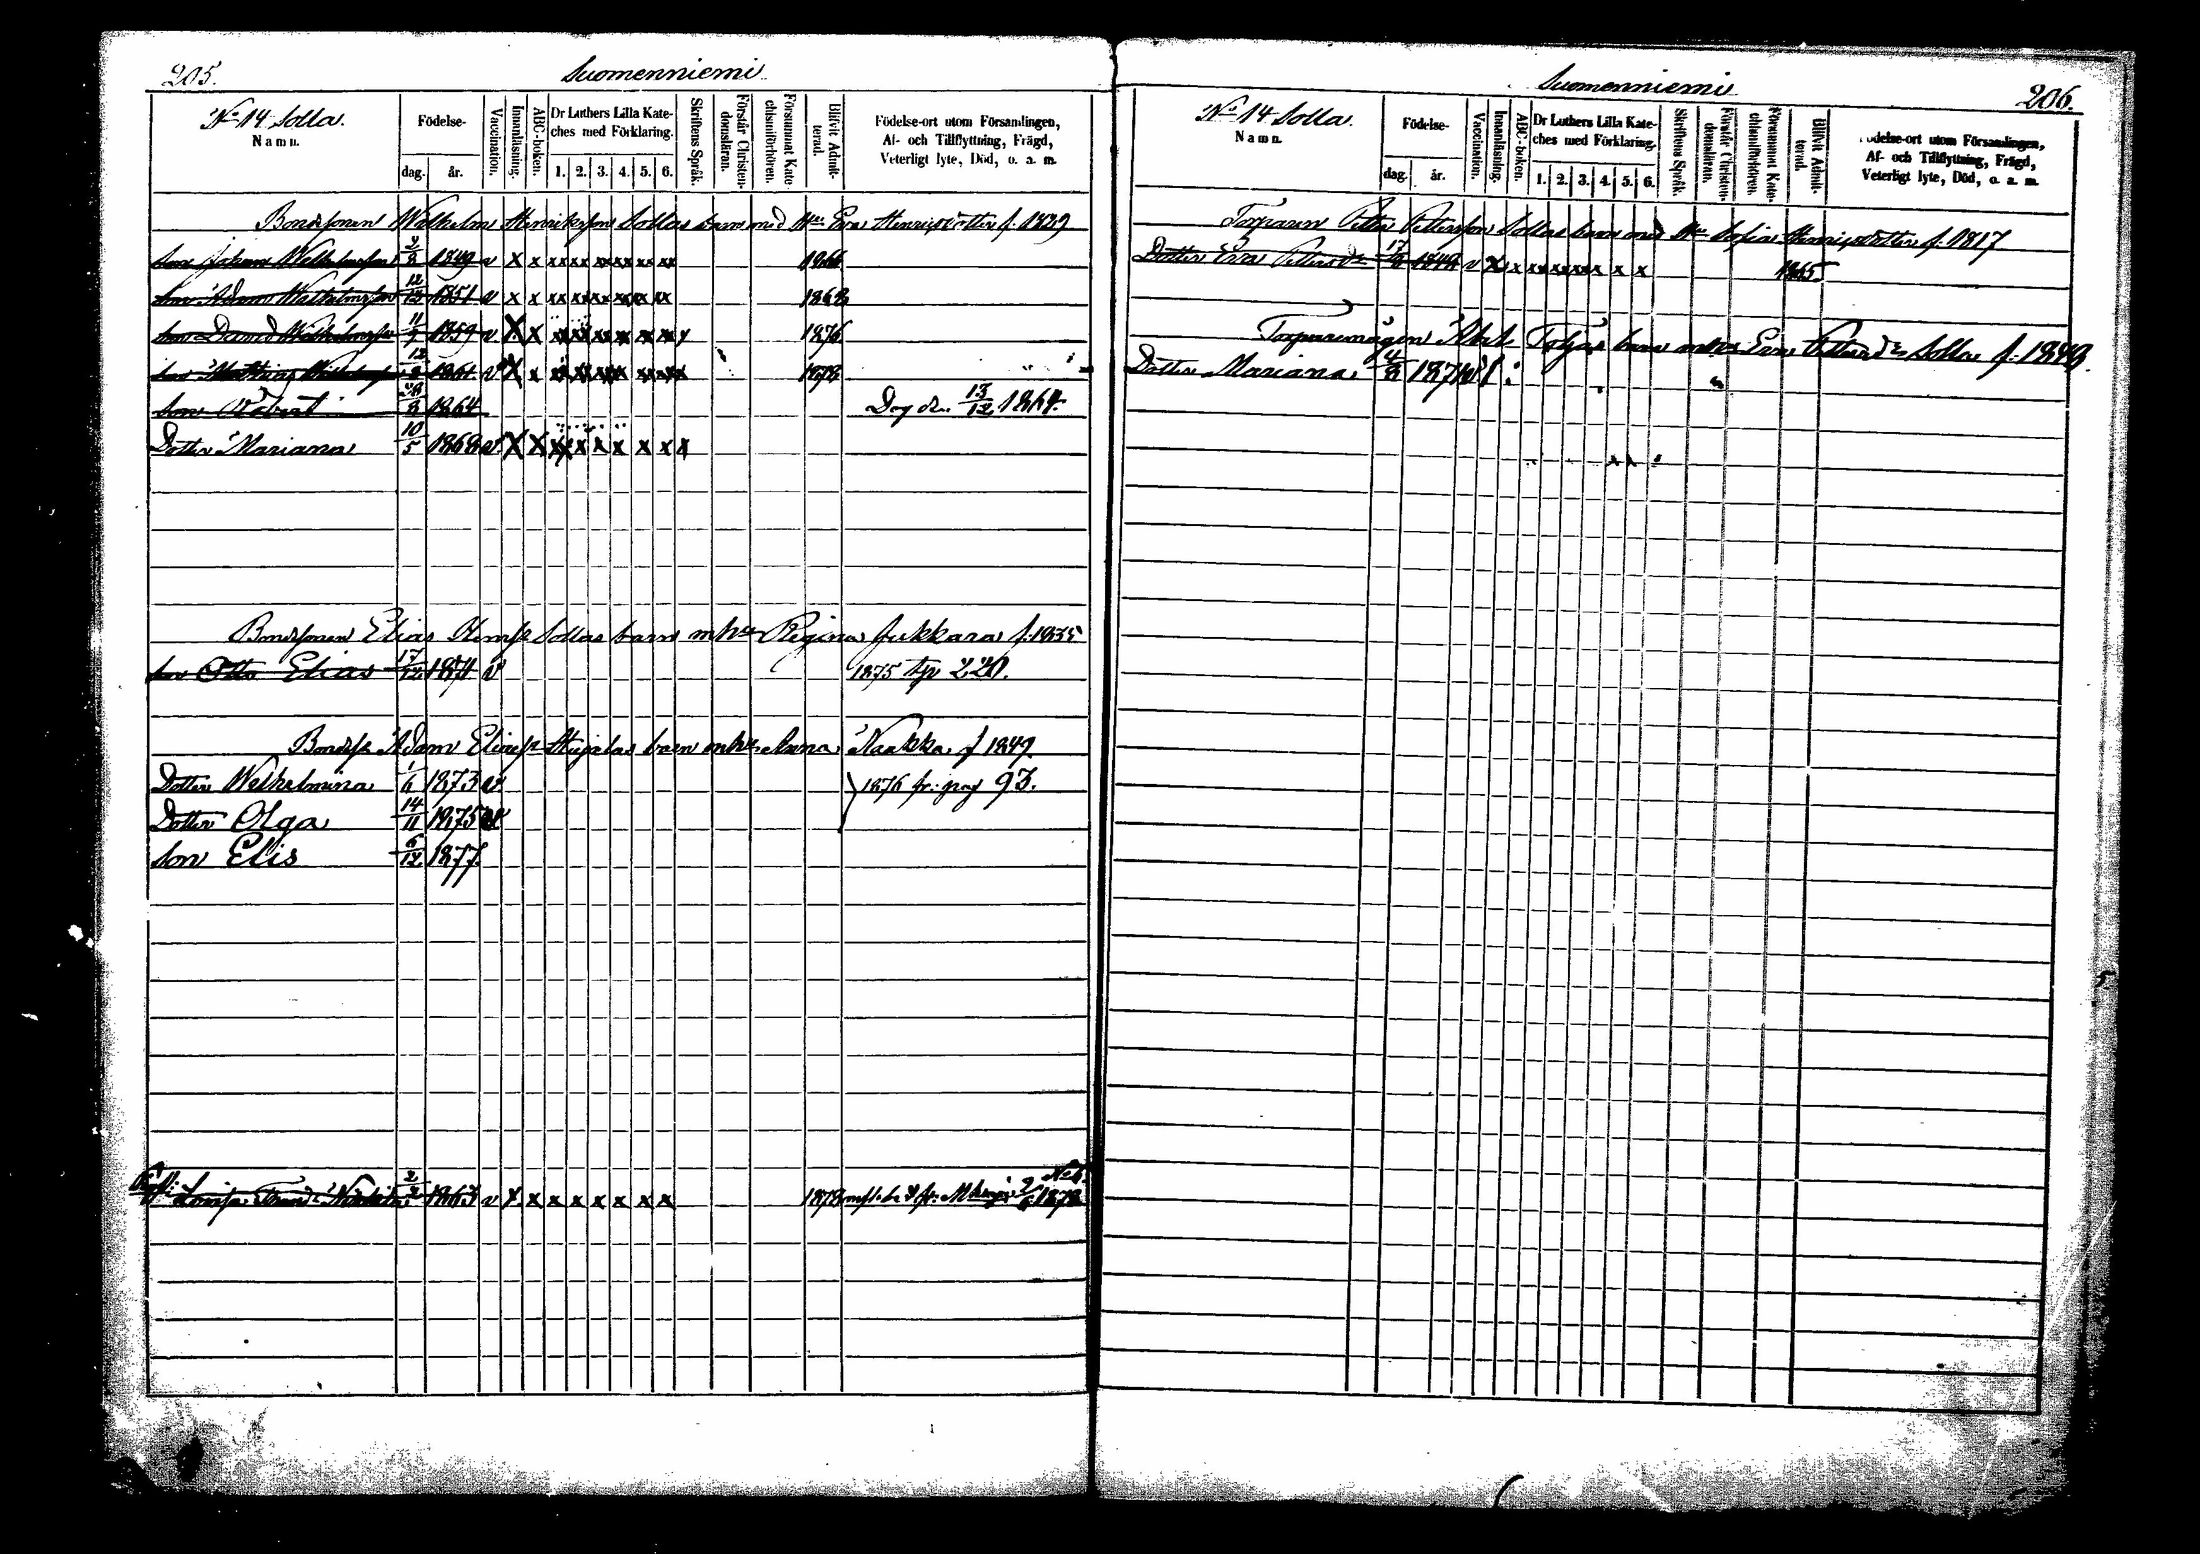 205.
Suomenniemi
No 14 Solla.
Namn.
Födelse-
dag. år.
Vaccination.
Innanläsning.
ABC-boken.
Dr Luthers Lilla Kate-
ches med Förklaring.
1. 2. 3. 4. 5. 6.
Skriftens Språk.
Förstår Christen-
domsläran.
Försummat Kate
chismiförhören.
Blifvit Admit-
terad.
Födelse-ort utom Församlingen,
Af- och Tillflyttning, Frägd,
Veterligt lyte, Död, o. a. m.
Bondesonen Wilhelm Henriksson Sollas barn med Hu Eva Henricsdotter f. 1829
Son Johan Wilhelmsson 1849 v x x xx xx xx xx xx xx 1866
Son Adam Wilhelmsson 12 1851 v x x xx xx xx xx xx xx 1868
Son David Wilhelmsson 11/9 1859 v x x 1876
Son Mathias 12 1861 v x x 1878
Son Robert 8 1864 Dog den 13/12 1864.
Dotter Mariana 10/5 1868 v x x x x x x x x x
Bondesonen Elias Hensp Sollas barn m hu Regina Jukkara f. 1835
Son Otto Elias 17/12 1871 v 1875 tp 220.
Bondes Adam Eliasp barn m hu Anna Naakka f 1849
Dotter Wilhelmina 1/6 1873 v 1876 fr: pag 93.
Dotter Olga 14/11 1875 v
Son Elis 6/12 1877.
Lovisa 1863 v x x x x x x x x 1878 fr: 2/6 1878
206.
Suomenniemi
No 14 Solla.
Namn.
Födelse-
dag. år.
Vaccination.
Innanläsning.
ABC-boken.
Dr Luthers Lilla Kate-
ches med Förklaring.
1. 2. 3. 4. 5. 6.
Skriftens Språk.
Förstår Christen-
domsläran.
Försummat Kate-
chismiförhören.
Blifvit Admit-
terad.
Födelse-ort utom Församlingen,
Af- och Tillflyttning, Frägd,
Veterligt lyte, Död, o. a. m.
Torparen Petter Pettersson Sollas barn med Hu Sofia Henricsdotter f. 1817
Dotter Eva Pettersdr 17 1848 v x x xx xx xx x x x 1865.
Torparemågen barn m hu Eva Pettersdr Solla f. 1848.
Dotter Mariana 4/8 1871